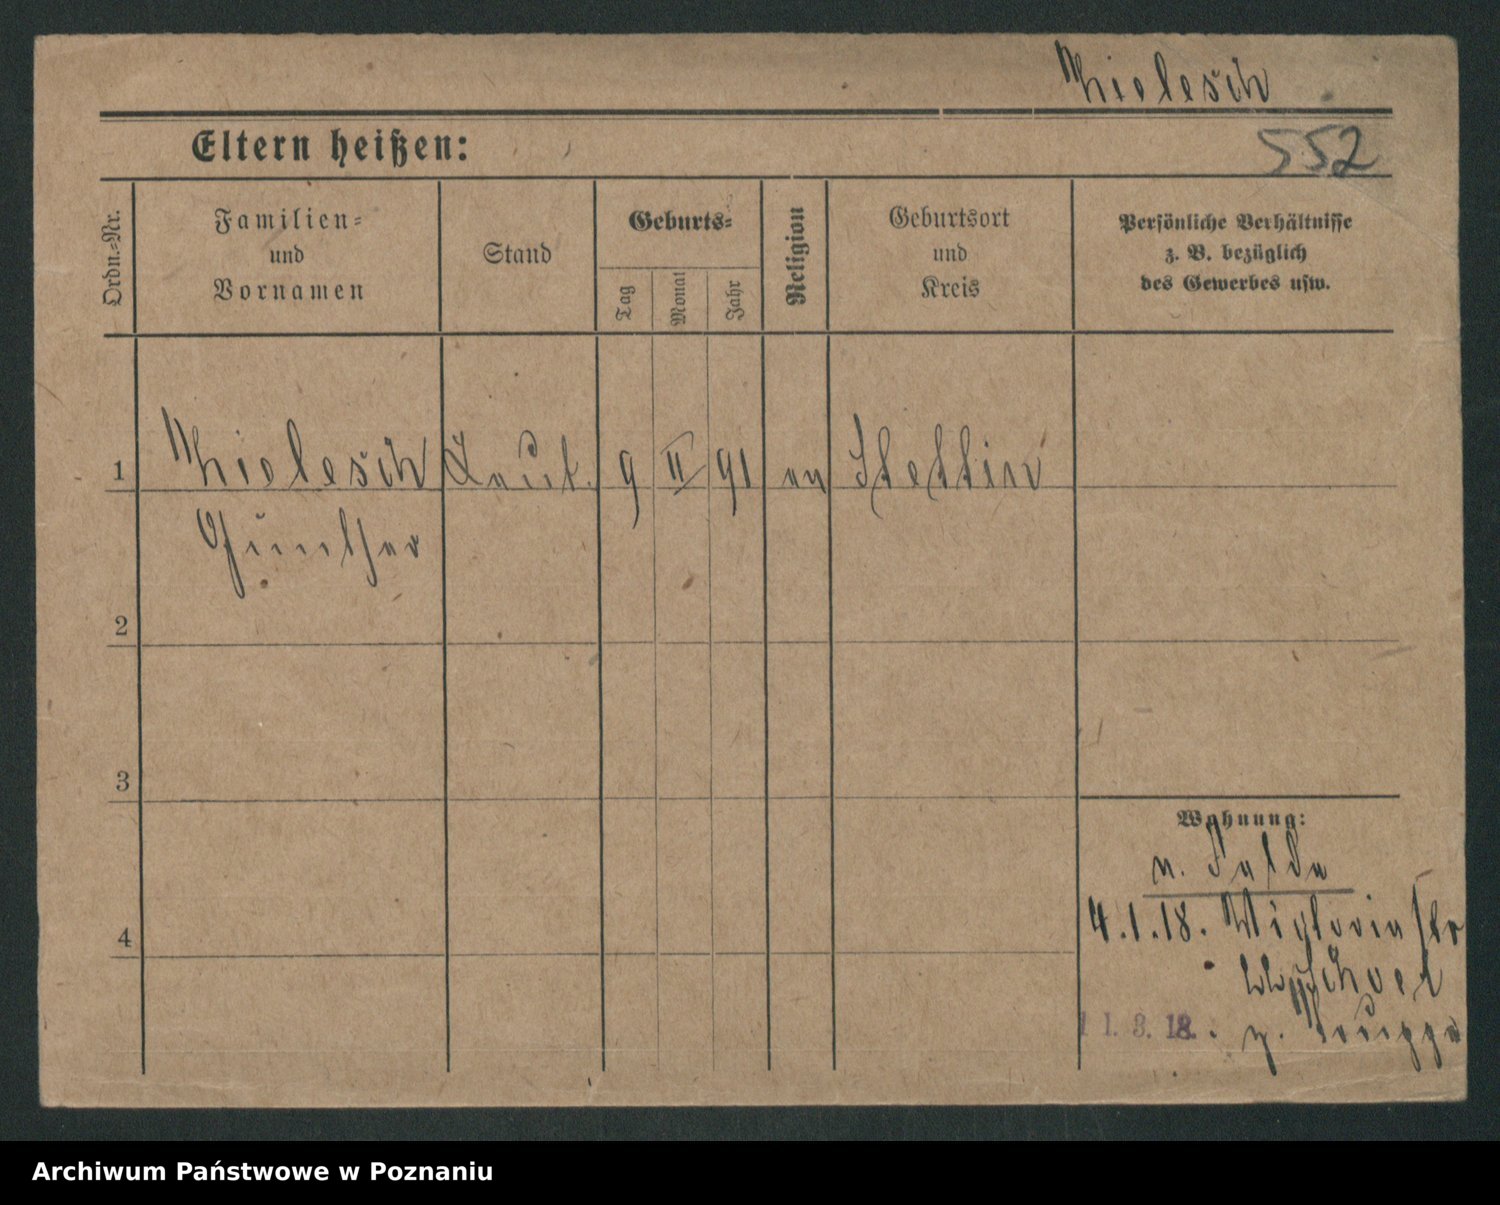 Thielesch
552
Eltern heißen:
Ordn.=Nr.
Familien=
und
Vornamen
Stand
Geburts=
Tag
Monat
Jahr
Religion
Geburtsort
und
Kreis
Persönliche Verhältnisse
z. B. bezüglich
des Gewerbes usw.
1
Thielesch Leut. 9 II 91 ev Stettin
Günther
2
3
Wohnung:
v. Felde
4
4.1.18. Viktoria str
11. 3. 18. z. Truppe
Archiwum Państwowe w Poznaniu